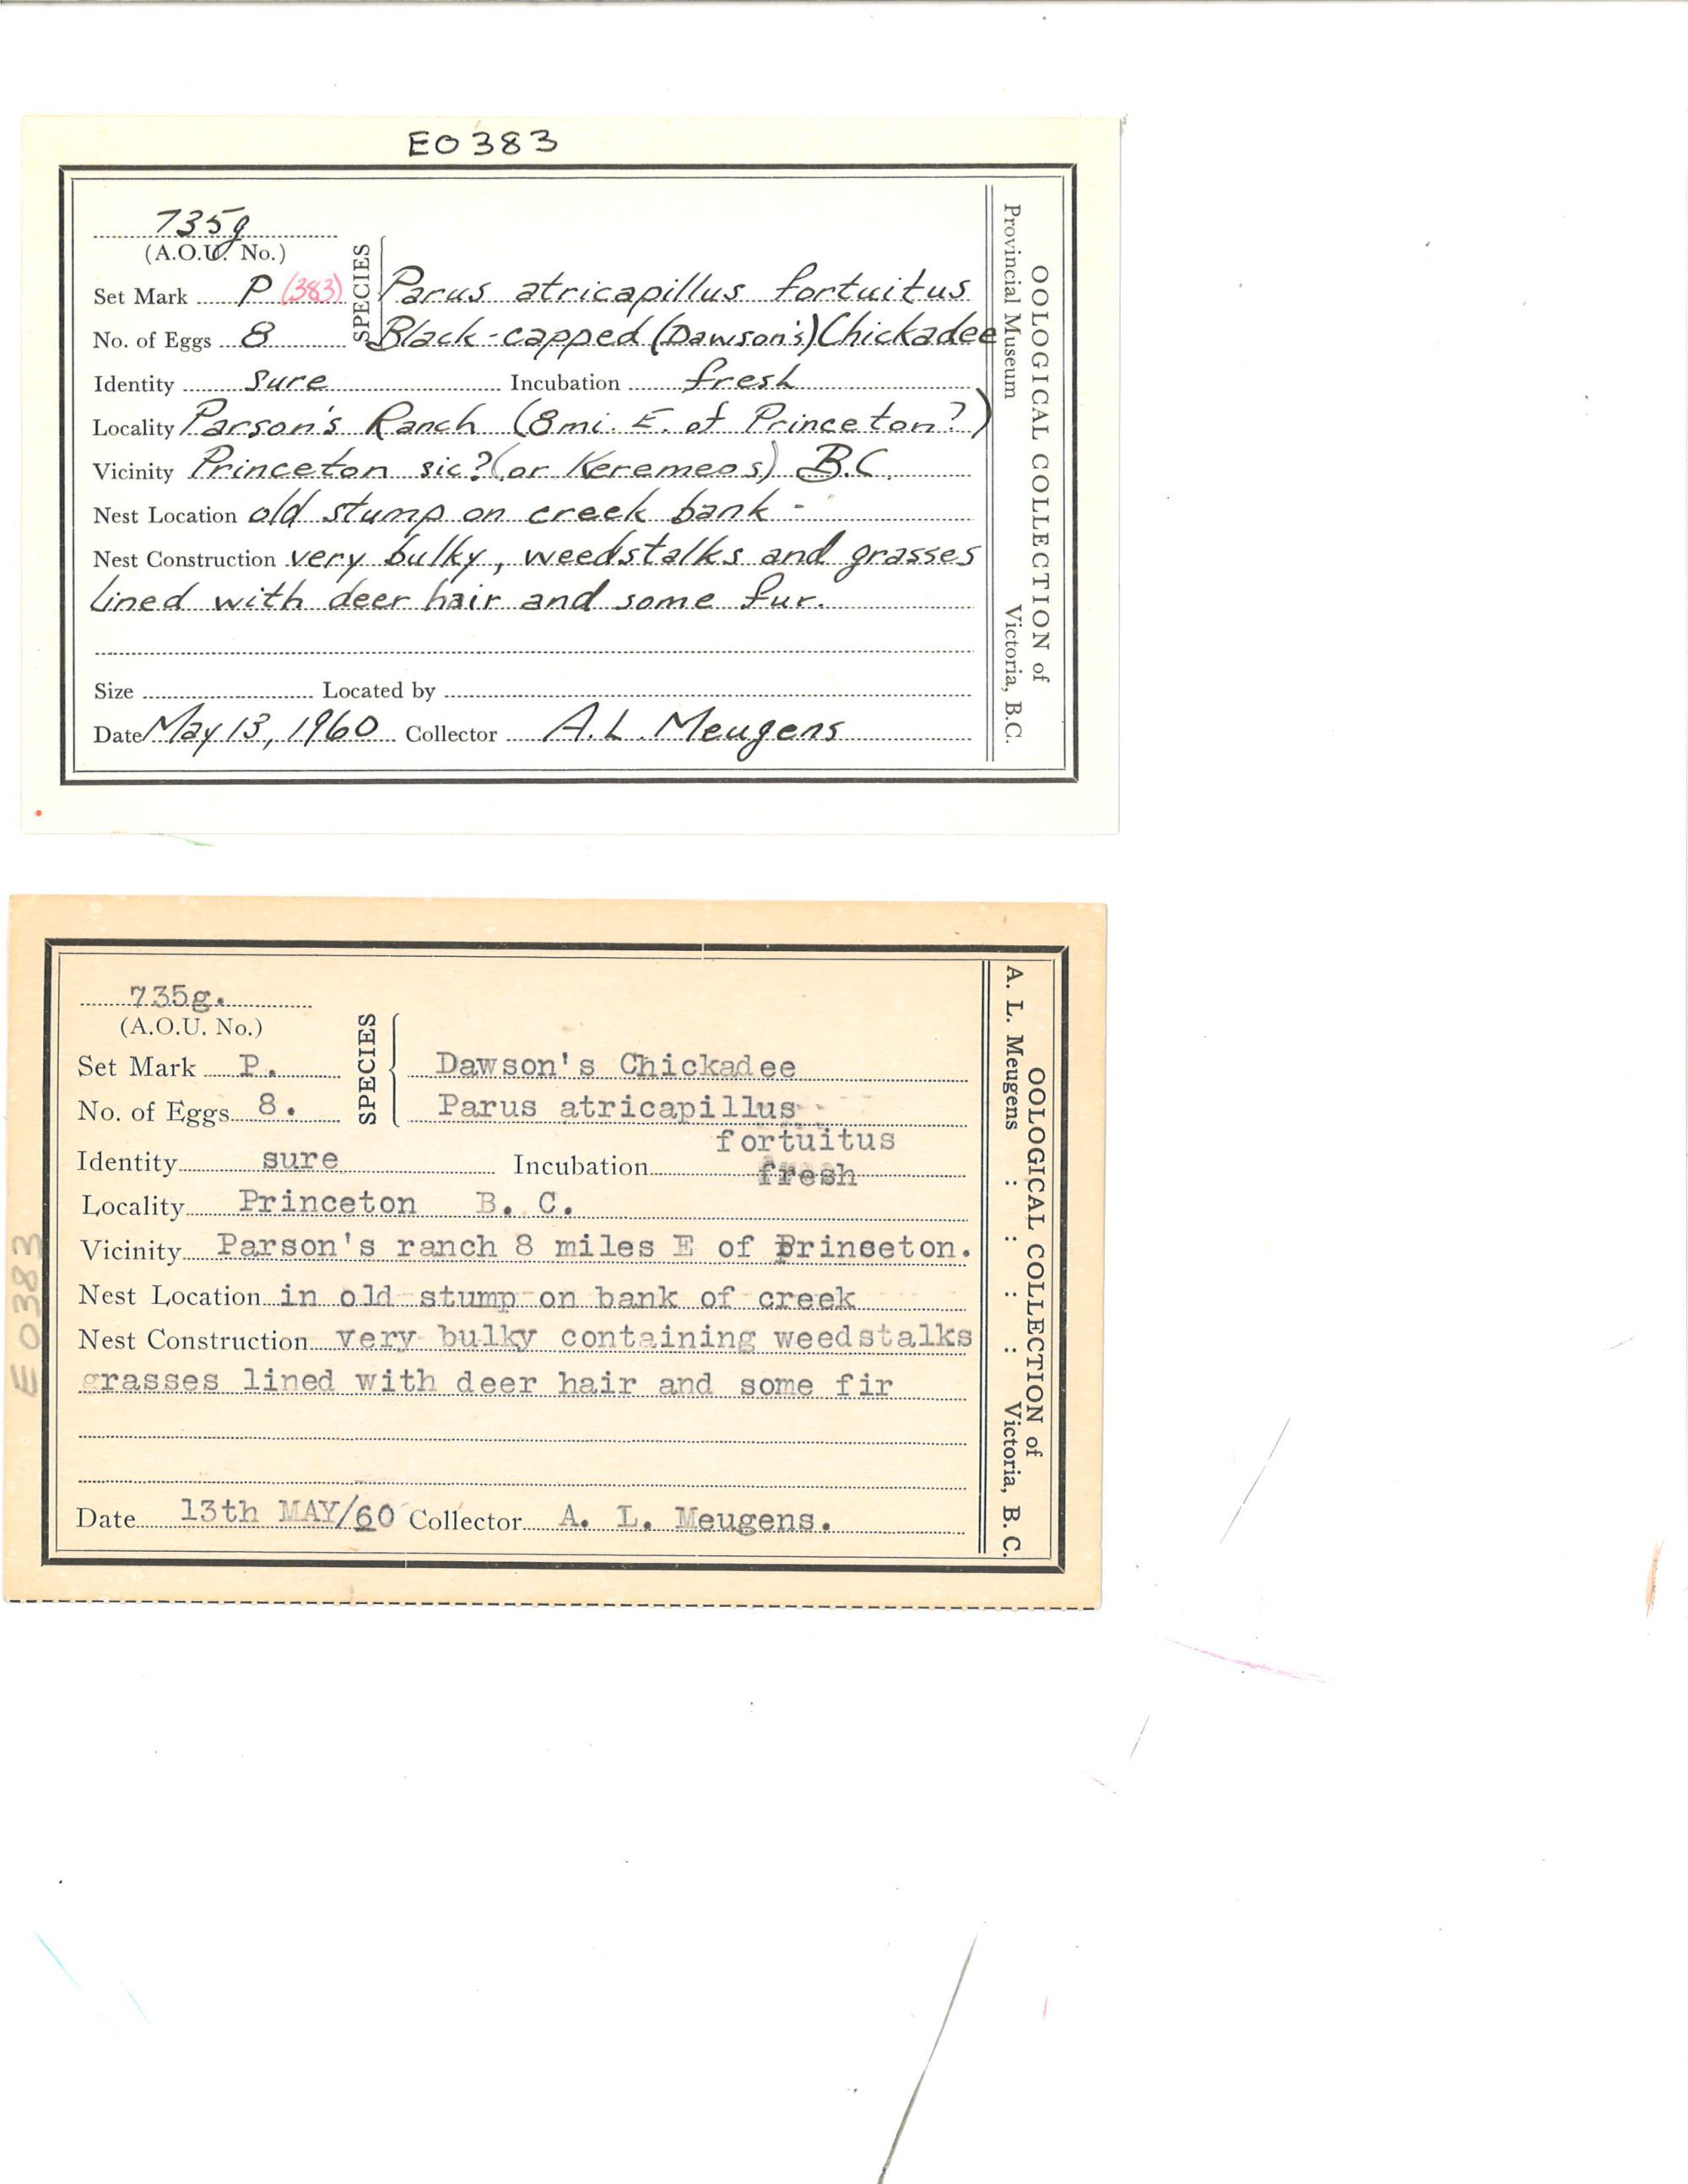 E0383
735g
(A.O.U. No.)
SPECIES
Set Mark P (383) Parus atricapillus fortuitus
No. of Eggs 8 Black-capped (Dawson's) Chickadee
Identity sure Incubation fresh
Locality Parson's Ranch (8 mi. E. of Princeton?)
Vicinity Princeton sic? (or Keremeos) B.C.
Nest Location old stump on creek bank -
Nest Construction very bulky, weedstalks and grasses
lined with deer hair and some fur.
Size Located by
Date May 13, 1960 Collector A.L. Meugens
OOLOGICAL COLLECTION of
Provincial Museum Victoria, B.C.
735g.
(A.O.U. No.)
SPECIES
Set Mark P. Dawson's Chickadee
No. of Eggs 8. Parus atricapillus
fortuitus
Identity sure Incubation fresh
Locality Princeton B. C.
Vicinity Parson's ranch 8 miles E of Prinseton.
Nest Location in old stump on bank of creek
Nest Construction very bulky containing weedstalks
grasses lined with deer hair and some fir
Date 13th MAY/60 Collector A. L. Meugens.
OOLOGICAL COLLECTION of
A. L. Meugens : : : : Victoria, B. C.
E0383